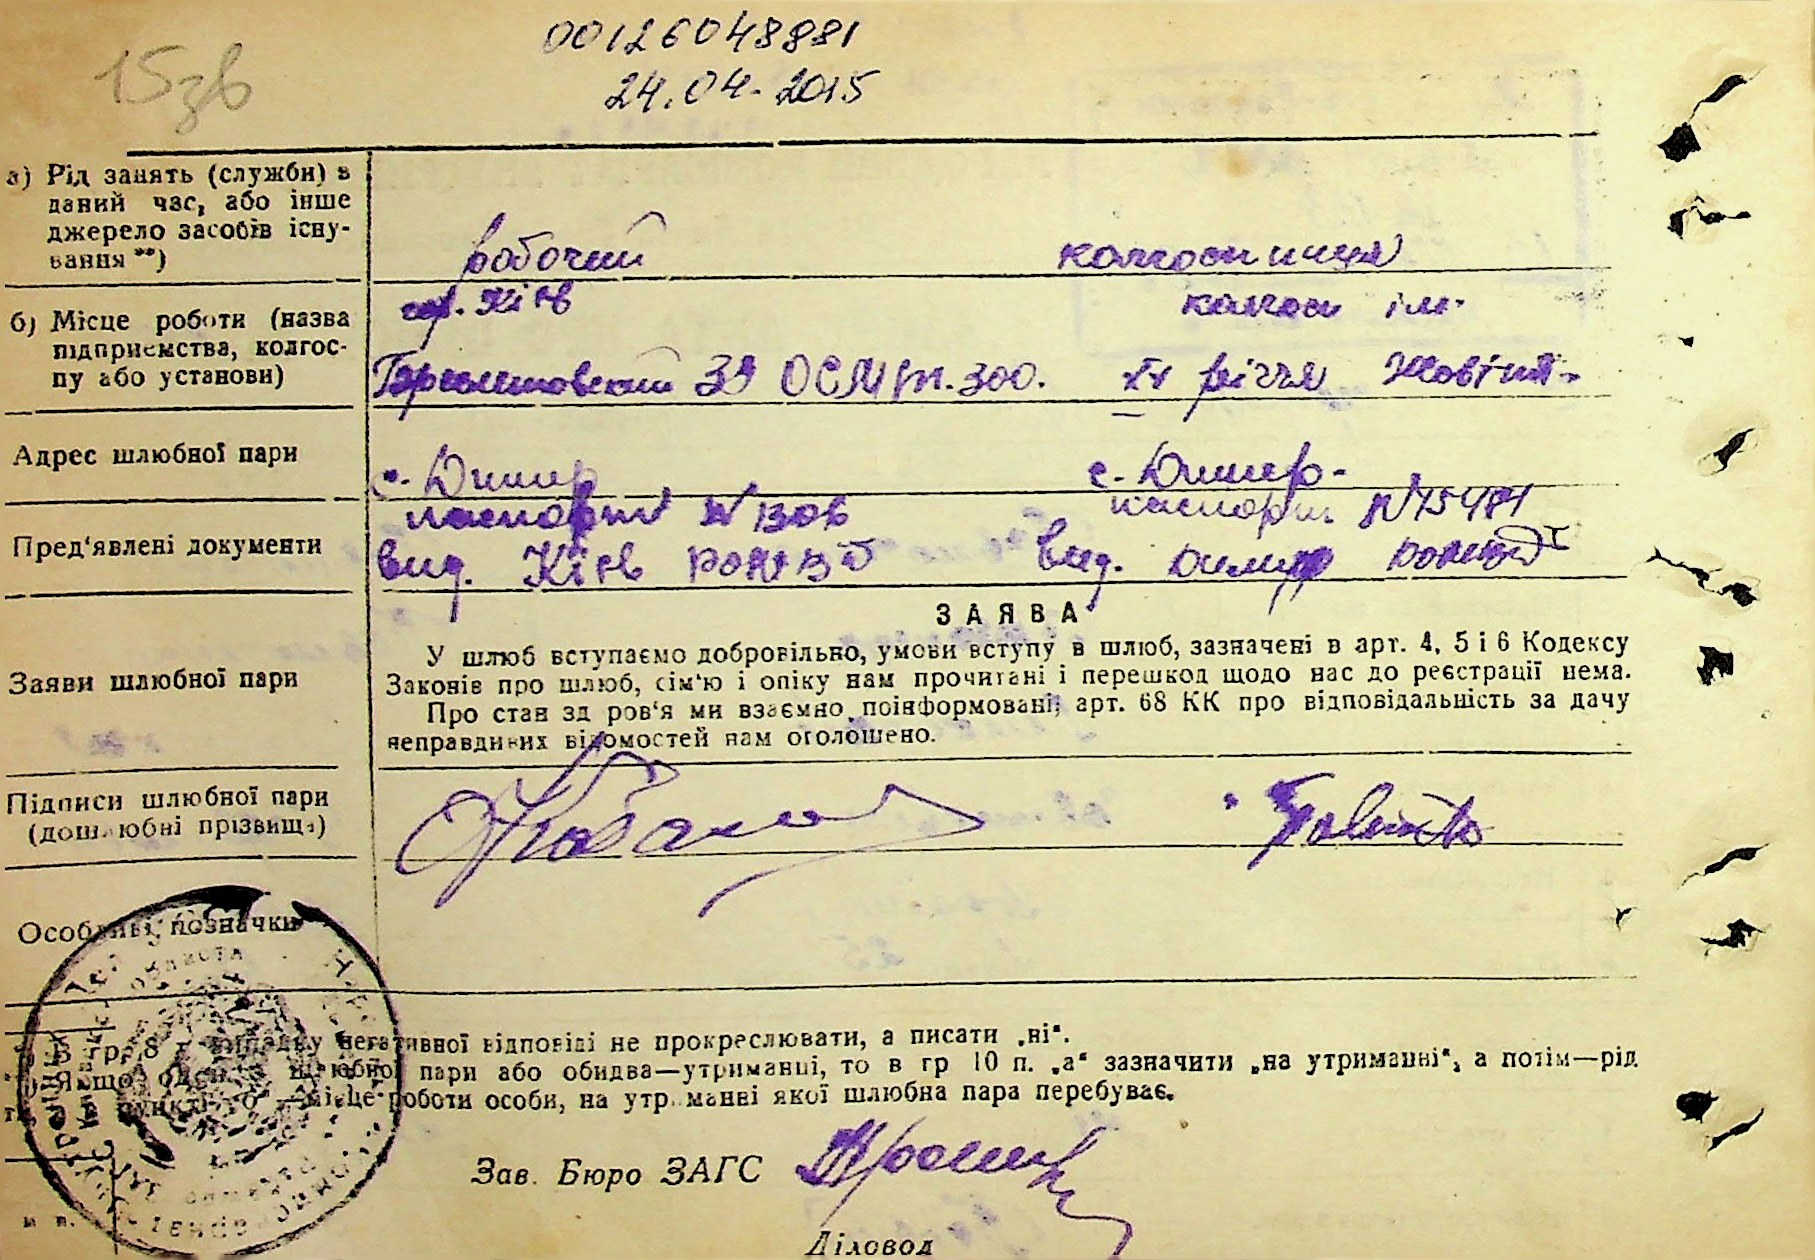 00126048881
24.04.2015
15зв
а) Рід занять (служби) в
даний час, або інше
джерело засобів існу-
вання **)
робочий колгоспниця
б) Місце роботи (назва
підприємства, колгос-
пу або установи)
Київ колгосп ім.
ОСМ 300. XX річчя Жовтня
Адрес шлюбної пари
с. Димер с. Димер
Пред'явлені документи
паспорт № 1306 паспорт №
вид. Київ вид. Димер
ЗАЯВА
Заяви шлюбної пари
У шлюб вступаємо добровільно, умови вступу в шлюб, зазначені в арт. 4, 5 і 6 Кодексу
Законів про шлюб, сім'ю і опіку нам прочитані і перешкод щодо нас до реєстрації нема.
Про стан здоров'я ми взаємно поінформовані; арт. 68 КК про відповідальність за дачу
неправдивих відомостей нам оголошено.
Підписи шлюбної пари
(дошлюбні прізвища)
Особливі позначки
*) В гр. 8 у випадку негативної відповіді не прокреслювати, а писати „ні“.
**) Якщо один з шлюбної пари або обидва—утриманці, то в гр 10 п. „а“ зазначити „на утриманні“, а потім—рід
пункті місце роботи особи, на утриманні якої шлюбна пара перебуває.
Зав. Бюро ЗАГС
м. п.
Діловод